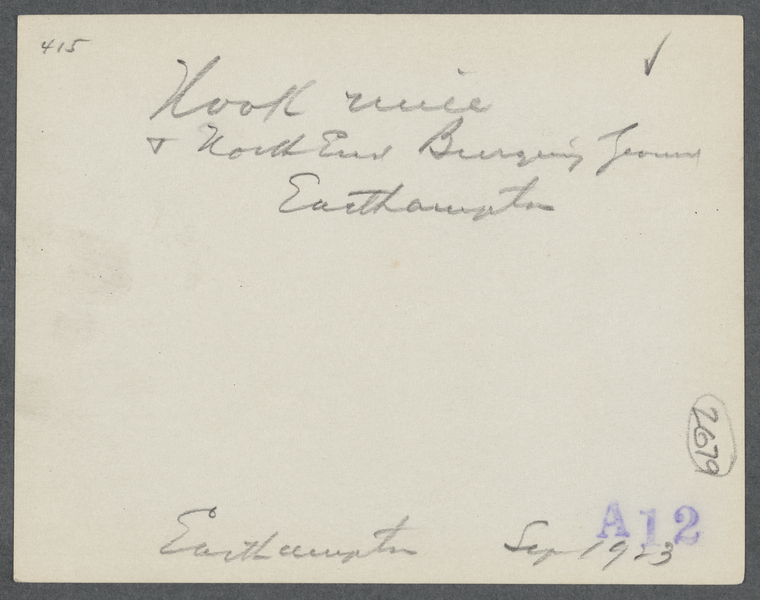 415
Hook mill
& North End Burying Ground
Easthampton
2679
A12
Easthampton Sep 1923